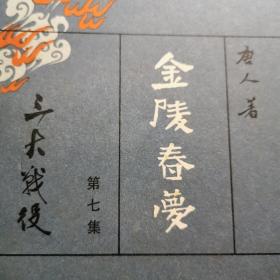 唐人著
金陵春夢
第七集
三大戰役